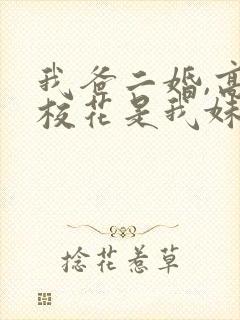 我爸二婚,高
校花是我妹
捻花惹草